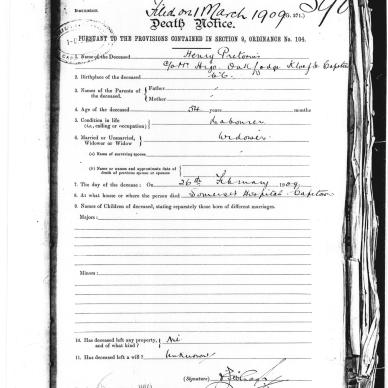 Filed on 1 March 1909
Death Notice.
PURSUANT TO THE PROVISIONS CONTAINED IN SECTION 9, ORDINANCE No. 104.
1. Name of the Deceased Henry Pretorius
c/o Mr Lodge Kloof St Capetown
2. Birthplace of the deceased C.C.
3. Names of the Parents of the deceased. Father
Mother
4. Age of the deceased 54 years months
5. Condition in life Labourer
(i.e., calling or occupation)
6. Married or Unmarried, Widower or Widow Widower
(a) Name of surviving spouse
(b) Name or names and approximate date of death of previous spouse or spouses
7. The day of the decease: On 26th February 1909
8. At what house or where the person died Somerset Hospital Capetown
9. Names of Children of deceased, stating separately those born of different marriages.
Majors:
Minors:
10. Has deceased left any property, and of what kind? Nil
11. Has deceased left a will? Unknown
(Signature)